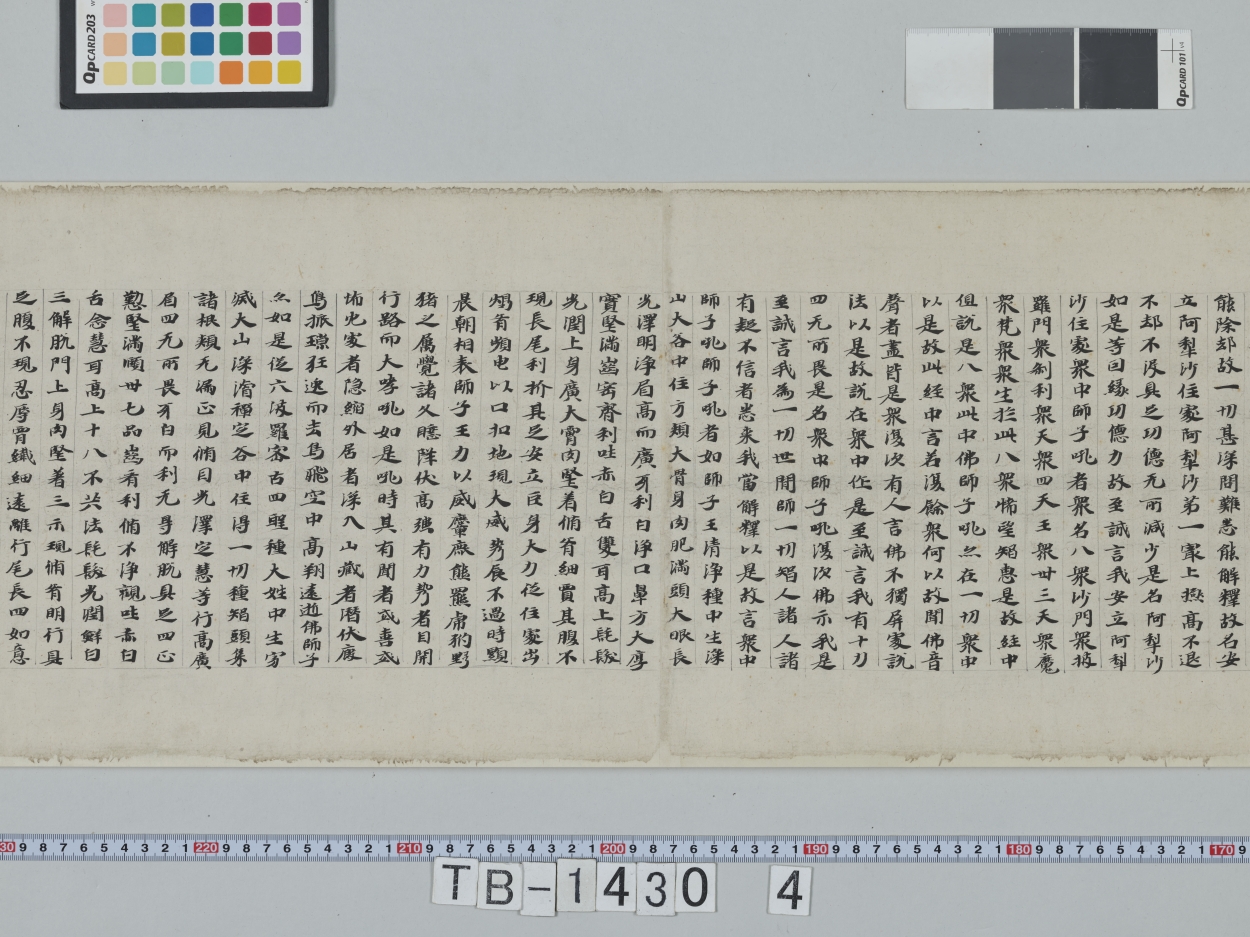 能除却故一切甚深問難悉能解釋故名安
立阿犁沙住家阿犁沙弟一寂上極高不退
不却不沒具足功德无所減少是名阿犁沙
如是等因緣功德力故至誠言我安立阿犁
沙住家眾中師子吼者眾名八眾沙門眾婆
羅門眾剎利眾天眾四天王眾卅三天眾魔
眾梵眾眾生於此八眾悕望智惠是故經中
但說是八眾此中佛師子吼亦在一切眾中
以是故此經中言若復餘眾何以故聞佛音
聲者盡皆是眾復次有人言佛不獨屏處說
法以是故說在眾中作是至誠言我有十力
四无所畏是名眾中師子吼復次佛示我是
至誠言我為一切世間師一切智人諸人諸
有疑不信者悉來我當解釋以是故言眾中
師子吼師子吼者如師子王清淨種中生深
山大谷中住方頰大骨身肉肥滿頭大眼長
光澤明淨眉高而廣牙利白淨口鼻方大厚
實堅滿齒密齊利吐赤白舌雙耳高上髦髮
光潤上身廣大膚肉堅着脩脊細䏿其腹不
現長尾利爪其足安立巨身大力從住處出
搦脊頻申以口扣地現大威勢晨不過時顯
晨朝相表師子王力以威麞鹿熊羆虎豹野
猪之屬覺諸久睡降伏高強有力勢者自開
行路而大哮吼如是吼時其有聞者或喜或
怖穴處者隱縮外居者深入山藏者潛伏廄
馬振鐶狂逸而去鳥飛空中高翔遠逝佛師子
亦如是從六波羅蜜古四聖種大姓中生寂
滅大山深滑禪定谷中住得一切種智頭集
諸根頰无漏正見脩目光澤定慧等行高廣
眉四无所畏牙白而利无㝵解脫具足四正
懃堅滿頤卅七品齒脩利脩不淨觀吐赤白
舌念慧耳高上十八不共法髦髮光潤鮮白
三解脫門上身肉堅著三示現脩脊明行具
足腹不現忍辱䏿纖細遠離行尾長四如意
QpCARD 203
QpCARD 101 v4
TB-1430 4